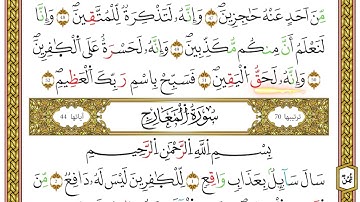 مِّنْ أَحَدٍ عَنْهُ حَٰجِزِينَ ٤٧ وَإِنَّهُۥ لَتَذْكِرَةٌ لِّلْمُتَّقِينَ ٤٨ وَإِنَّا
لَنَعْلَمُ أَنَّ مِنكُم مُّكَذِّبِينَ ٤٩ وَإِنَّهُۥ لَحَسْرَةٌ عَلَى ٱلْكَٰفِرِينَ
٥٠ وَإِنَّهُۥ لَحَقُّ ٱلْيَقِينِ ٥١ فَسَبِّحْ بِٱسْمِ رَبِّكَ ٱلْعَظِيمِ ٥٢
ترتيبها 70 سُورَةُ ٱلْمَعَارِجِ آياتها 44
بِسْمِ ٱللَّهِ ٱلرَّحْمَٰنِ ٱلرَّحِيمِ
سَأَلَ سَآئِلٌۢ بِعَذَابٍ وَاقِعٍ ١ لِّلْكَٰفِرِينَ لَيْسَ لَهُۥ دَافِعٌ ٢ مِّنَ